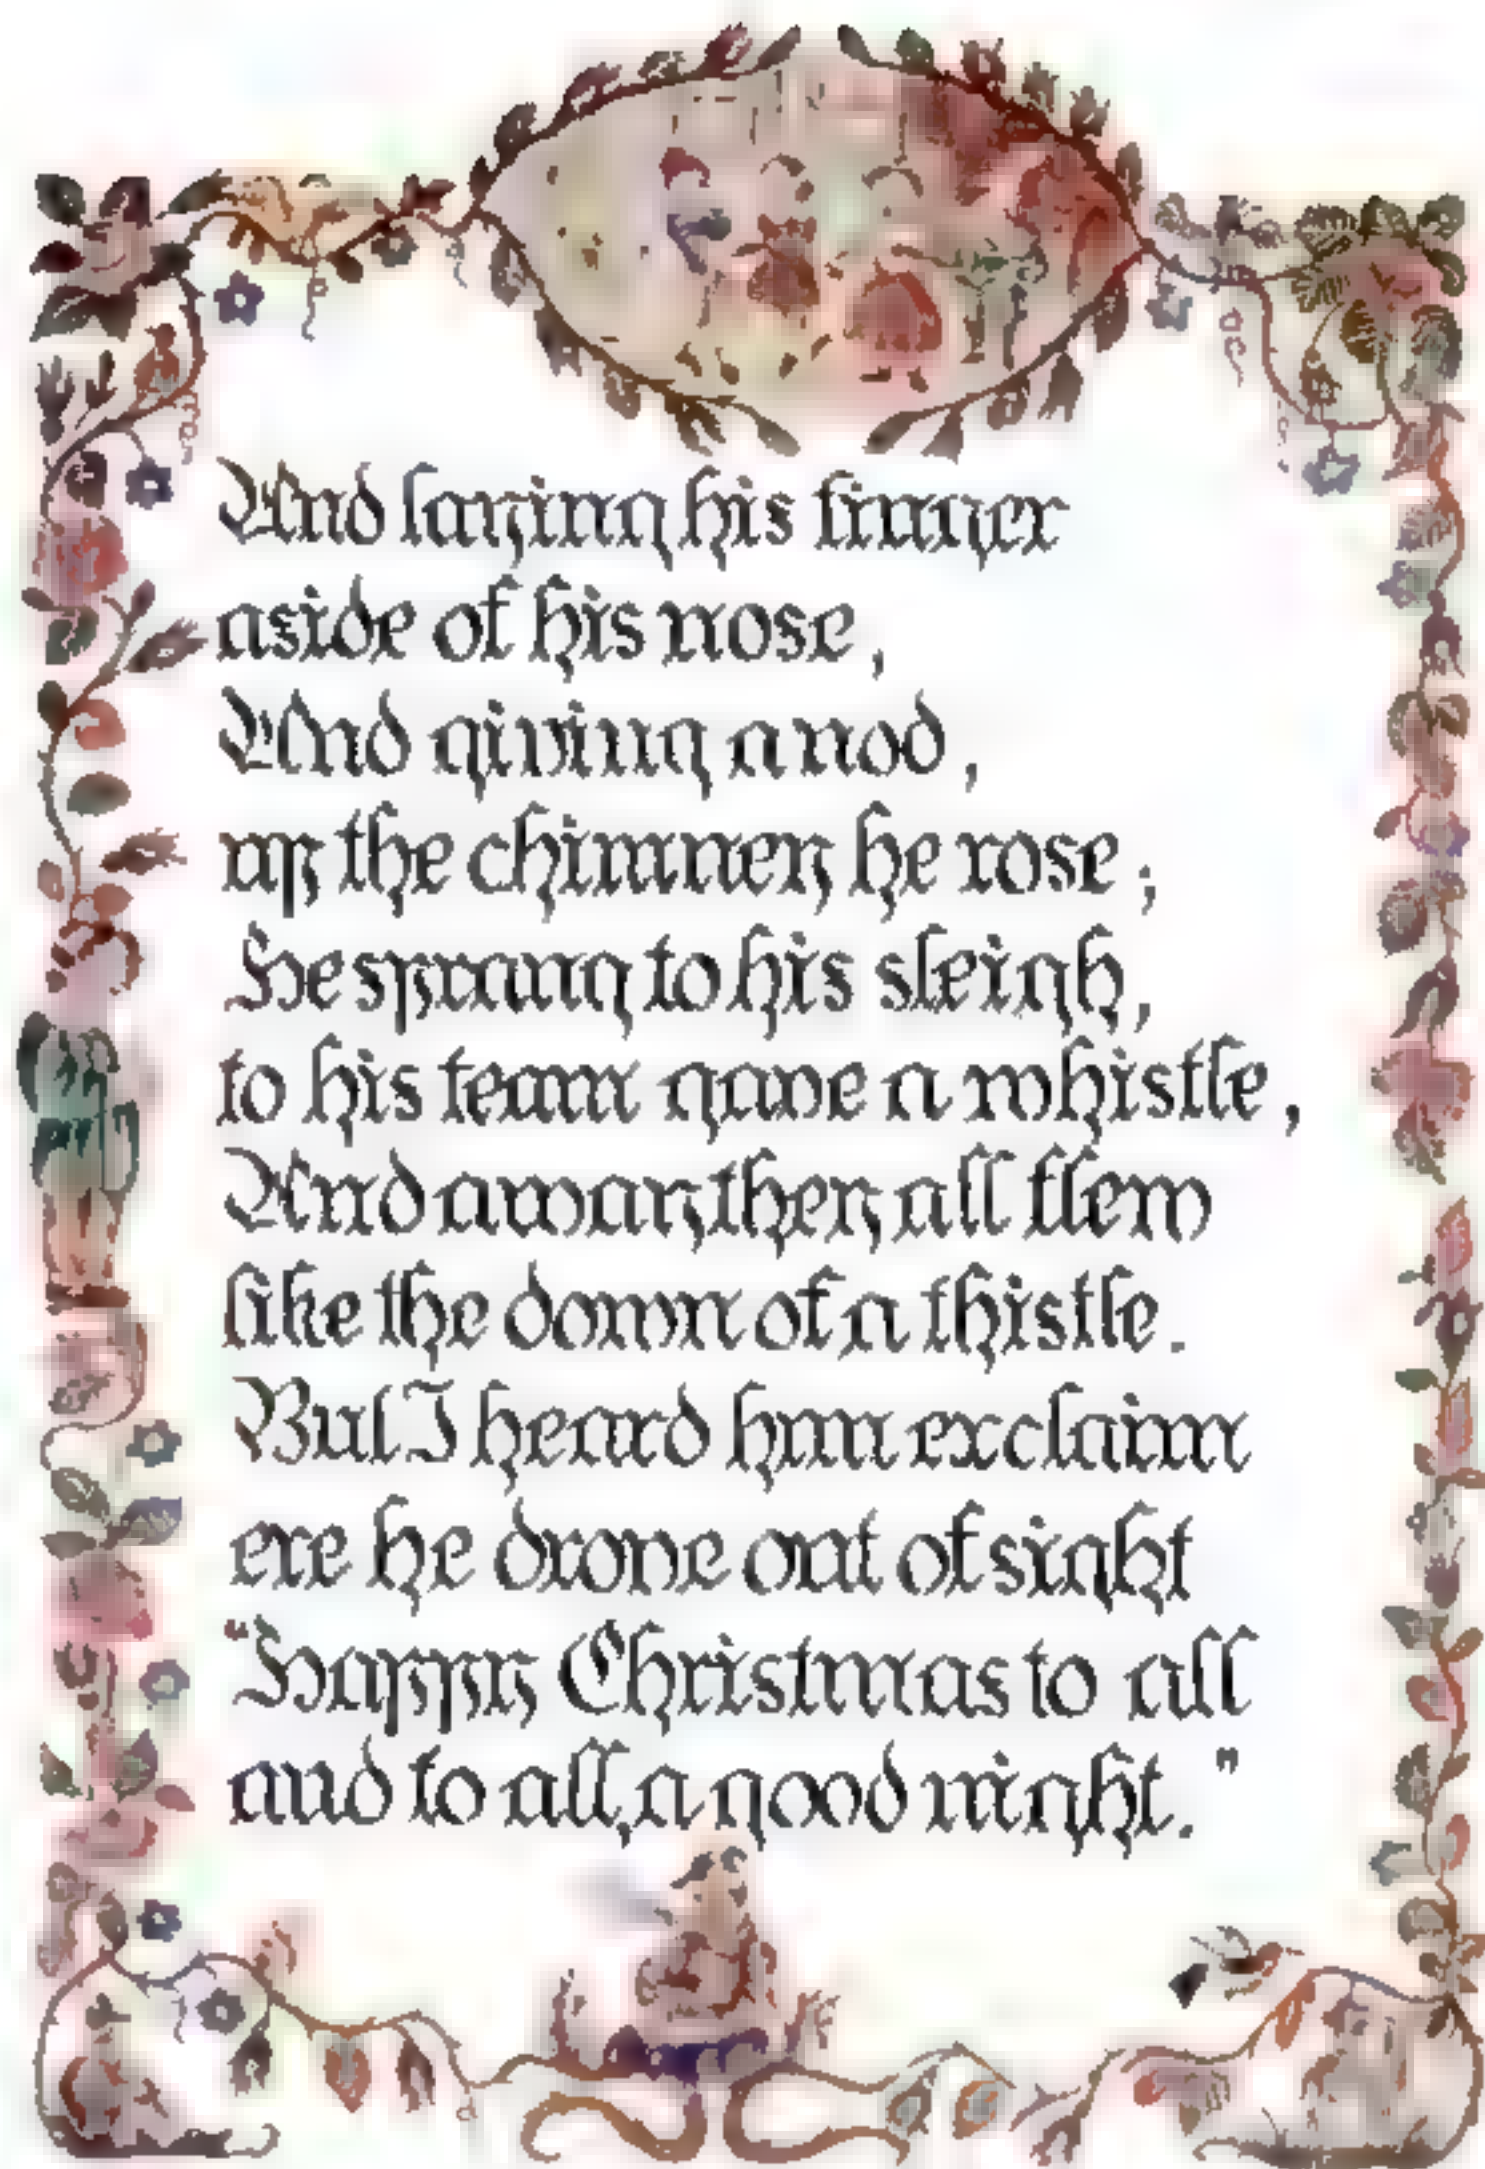 And laying his finger
aside of his nose,
And giving a nod,
up the chimney he rose;
He sprang to his sleigh,
to his team gave a whistle,
And away they all flew
like the down of a thistle.
But I heard him exclaim
ere he drove out of sight
"Happy Christmas to all
and to all, a good night."